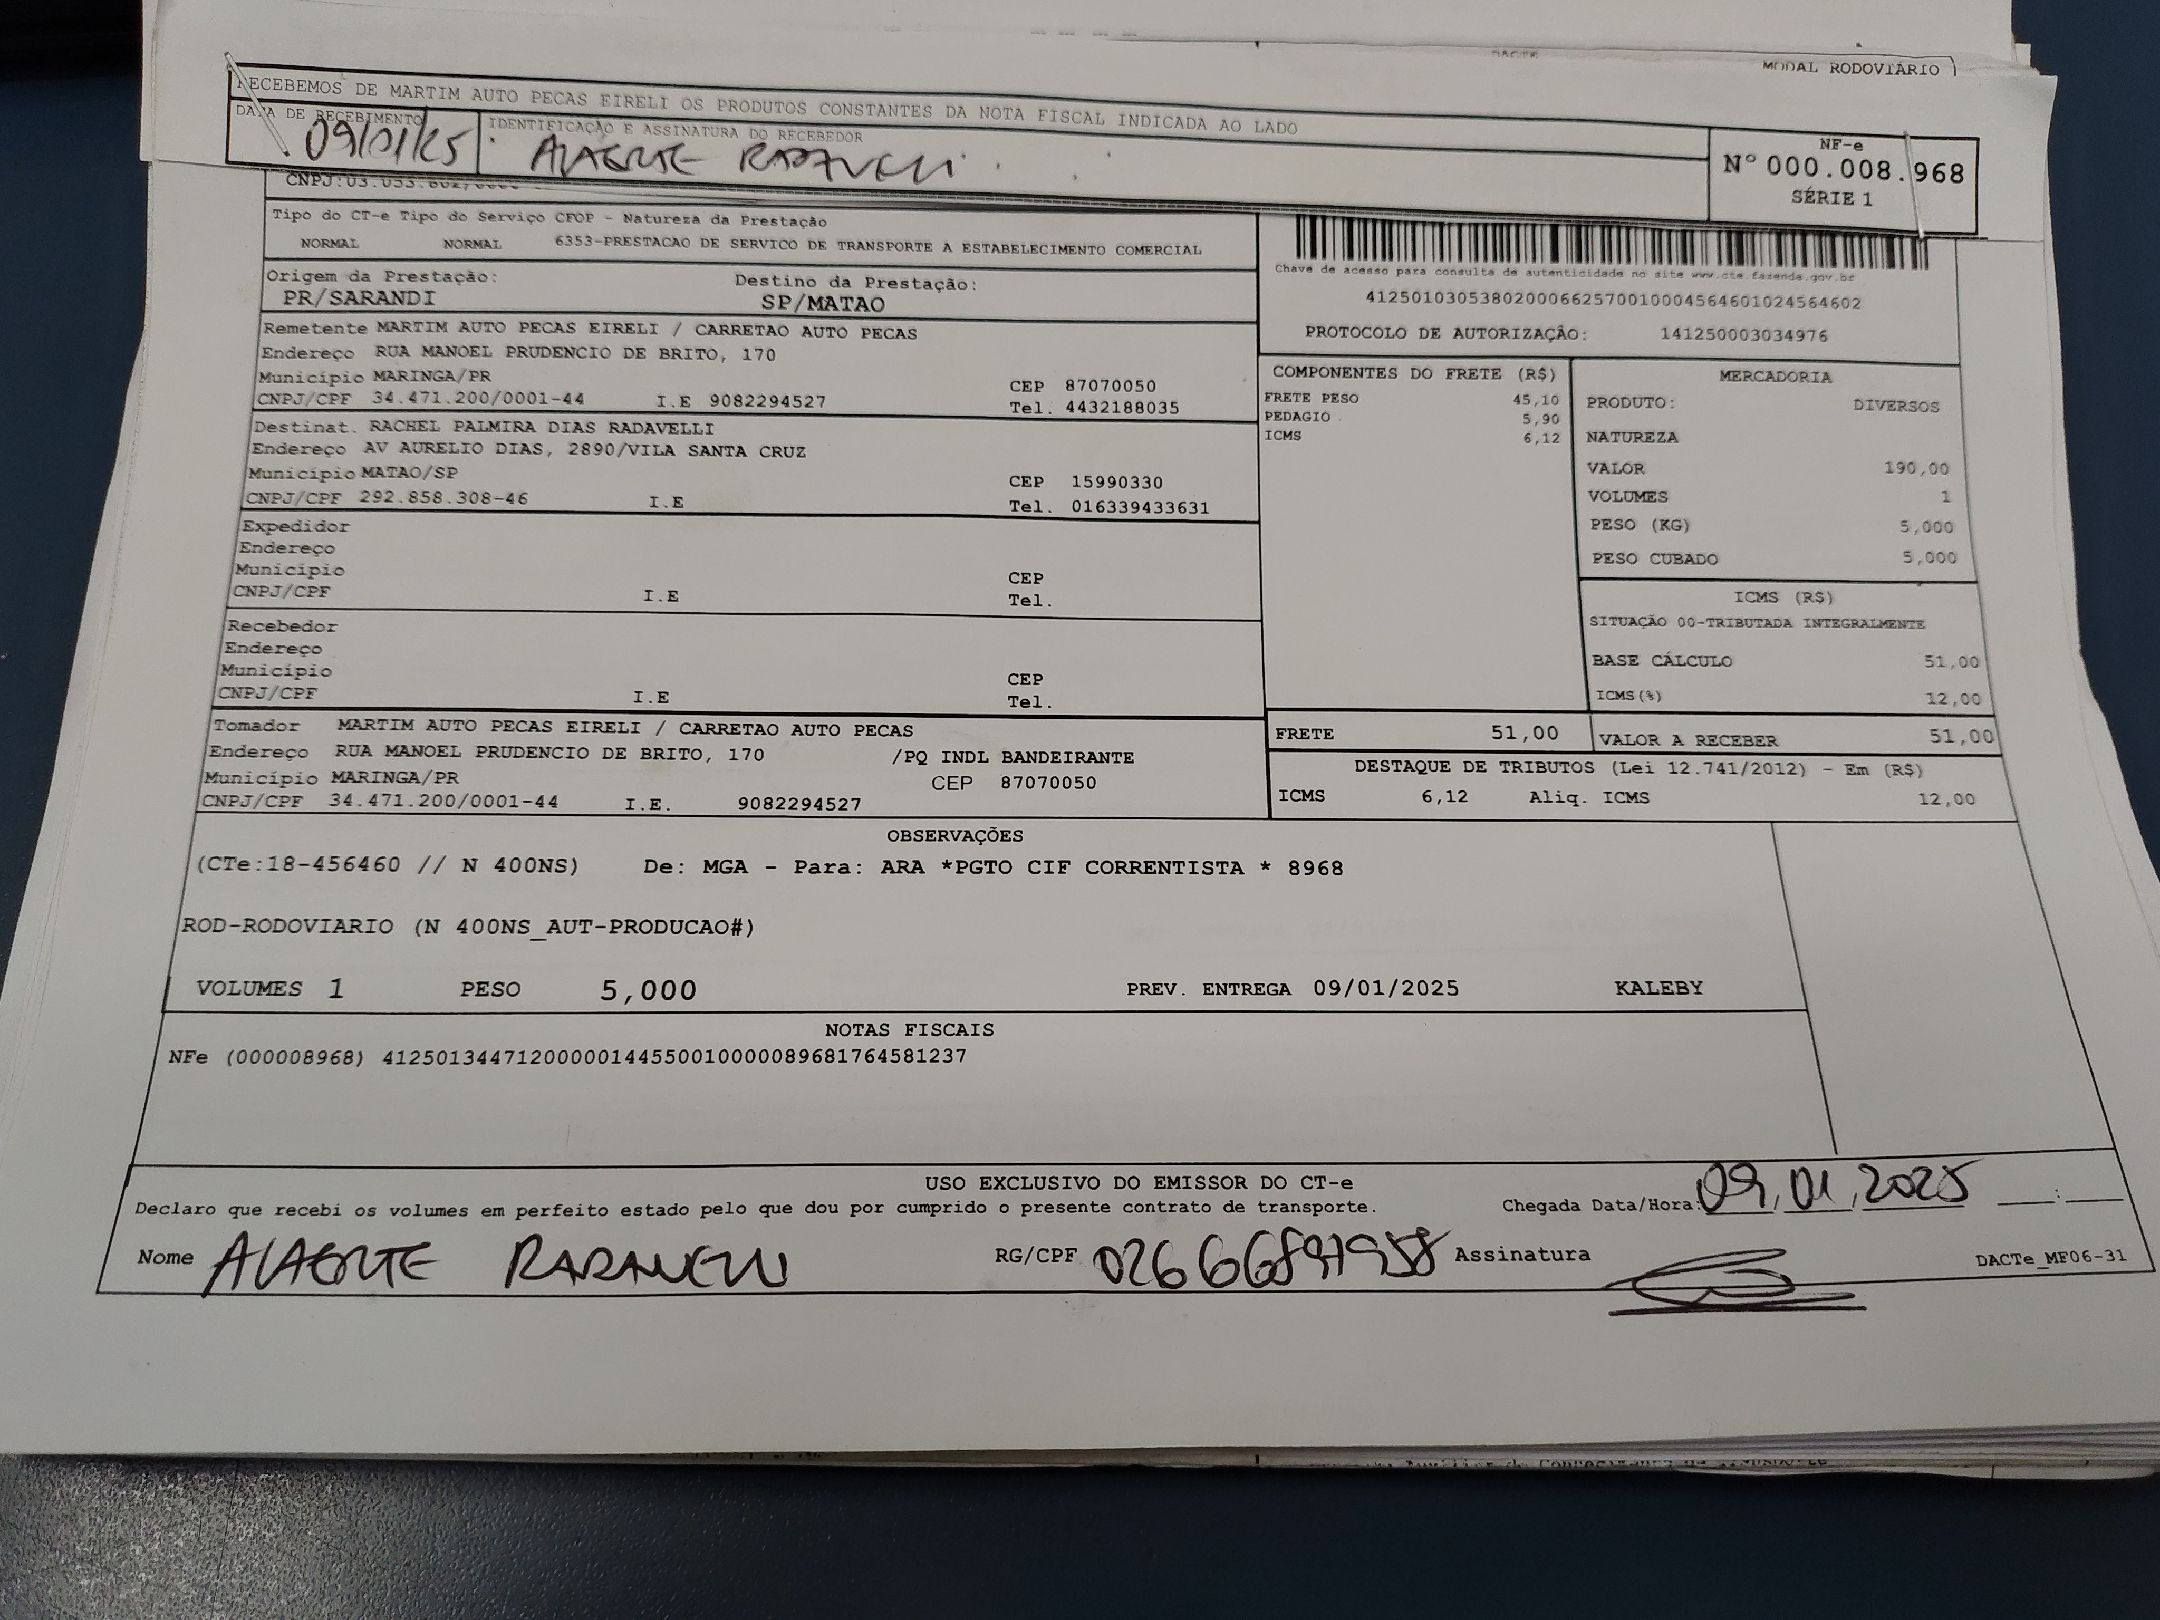 DACTE
MODAL RODOVIÁRIO
RECEBEMOS DE MARTIM AUTO PECAS EIRELI OS PRODUTOS CONSTANTES DA NOTA FISCAL INDICADA AO LADO
DATA DE RECEBIMENTO
09/01/25
IDENTIFICAÇÃO E ASSINATURA DO RECEBEDOR
ALAERTE RADAVELLI
NF-e
Nº 000.008.968
SÉRIE 1
Tipo do CT-e Tipo do Serviço CFOP - Natureza da Prestação
NORMAL NORMAL 6353-PRESTACAO DE SERVICO DE TRANSPORTE A ESTABELECIMENTO COMERCIAL
Origem da Prestação: Destino da Prestação:
PR/SARANDI SP/MATAO
Chave de acesso para consulta de autenticidade no site www.cte.fazenda.gov.br
41250103053802000662570010004564601024564602
PROTOCOLO DE AUTORIZAÇÃO: 141250003034976
Remetente MARTIM AUTO PECAS EIRELI / CARRETAO AUTO PECAS
Endereço RUA MANOEL PRUDENCIO DE BRITO, 170
Município MARINGA/PR CEP 87070050
CNPJ/CPF 34.471.200/0001-44 I.E 9082294527 Tel. 4432188035
Destinat. RACHEL PALMIRA DIAS RADAVELLI
Endereço AV AURELIO DIAS, 2890/VILA SANTA CRUZ
Município MATAO/SP CEP 15990330
CNPJ/CPF 292.858.308-46 I.E Tel. 016339433631
Expedidor
Endereço
Município CEP
CNPJ/CPF I.E Tel.
Recebedor
Endereço
Município CEP
CNPJ/CPF I.E Tel.
Tomador MARTIM AUTO PECAS EIRELI / CARRETAO AUTO PECAS
Endereço RUA MANOEL PRUDENCIO DE BRITO, 170 /PQ INDL BANDEIRANTE
Município MARINGA/PR CEP 87070050
CNPJ/CPF 34.471.200/0001-44 I.E. 9082294527
COMPONENTES DO FRETE (R$)
FRETE PESO 45,10
PEDAGIO 5,90
ICMS 6,12
MERCADORIA
PRODUTO: DIVERSOS
NATUREZA
VALOR 190,00
VOLUMES 1
PESO (KG) 5,000
PESO CUBADO 5,000
ICMS (R$)
SITUAÇÃO 00-TRIBUTADA INTEGRALMENTE
BASE CÁLCULO 51,00
ICMS(%) 12,00
FRETE 51,00 VALOR A RECEBER 51,00
DESTAQUE DE TRIBUTOS (Lei 12.741/2012) - Em (R$)
ICMS 6,12 Aliq. ICMS 12,00
OBSERVAÇÕES
(CTe:18-456460 // N 400NS) De: MGA - Para: ARA *PGTO CIF CORRENTISTA * 8968
ROD-RODOVIARIO (N 400NS_AUT-PRODUCAO#)
VOLUMES 1 PESO 5,000 PREV. ENTREGA 09/01/2025 KALEBY
NOTAS FISCAIS
NFe (000008968) 41250134471200000144550010000089681764581237
USO EXCLUSIVO DO EMISSOR DO CT-e
Declaro que recebi os volumes em perfeito estado pelo que dou por cumprido o presente contrato de transporte. Chegada Data/Hora: 09/01/2025 :
Nome ALAERTE RADAVELLI RG/CPF Assinatura DACTe_MF06-31